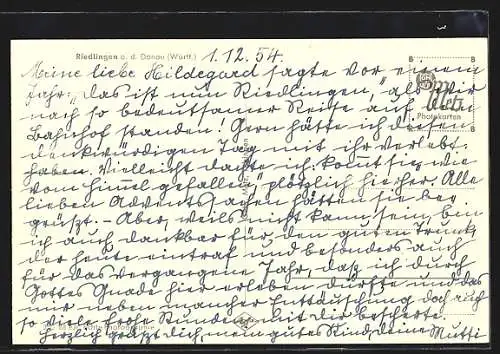 Riedlingen a. d. Donau (Württ.) 1.12.54.
Meine liebe Hildegard sagte vor einem
Jahr: "das ist nun Riedlingen," als wir
nach so bedeutsamer Reise auf dem
Bahnhof standen! Gern hätte ich diesen
denkwürdigen Tag mit ihr verlebt
haben. Vielleicht dachte ich: komt sie, wie
vom Himel gefallen, plötzlich hierher. Alle
lieben Adventssachen hätten sie be-
grüßt. - Aber, weils nicht kann sein, bin
ich auch dankbar für den guten
der heute eintraf und besonders auch
für das vergangene Jahr, das ich durch
Gottes Gnade hier erleben durfte und das
mir neben mancher Enttäuschung doch auch
so viele frohe Stunden mit Dir bescherte.
Herzlich grüßt Dich, mein gutes Kind, Deine Mutti
Photokarten